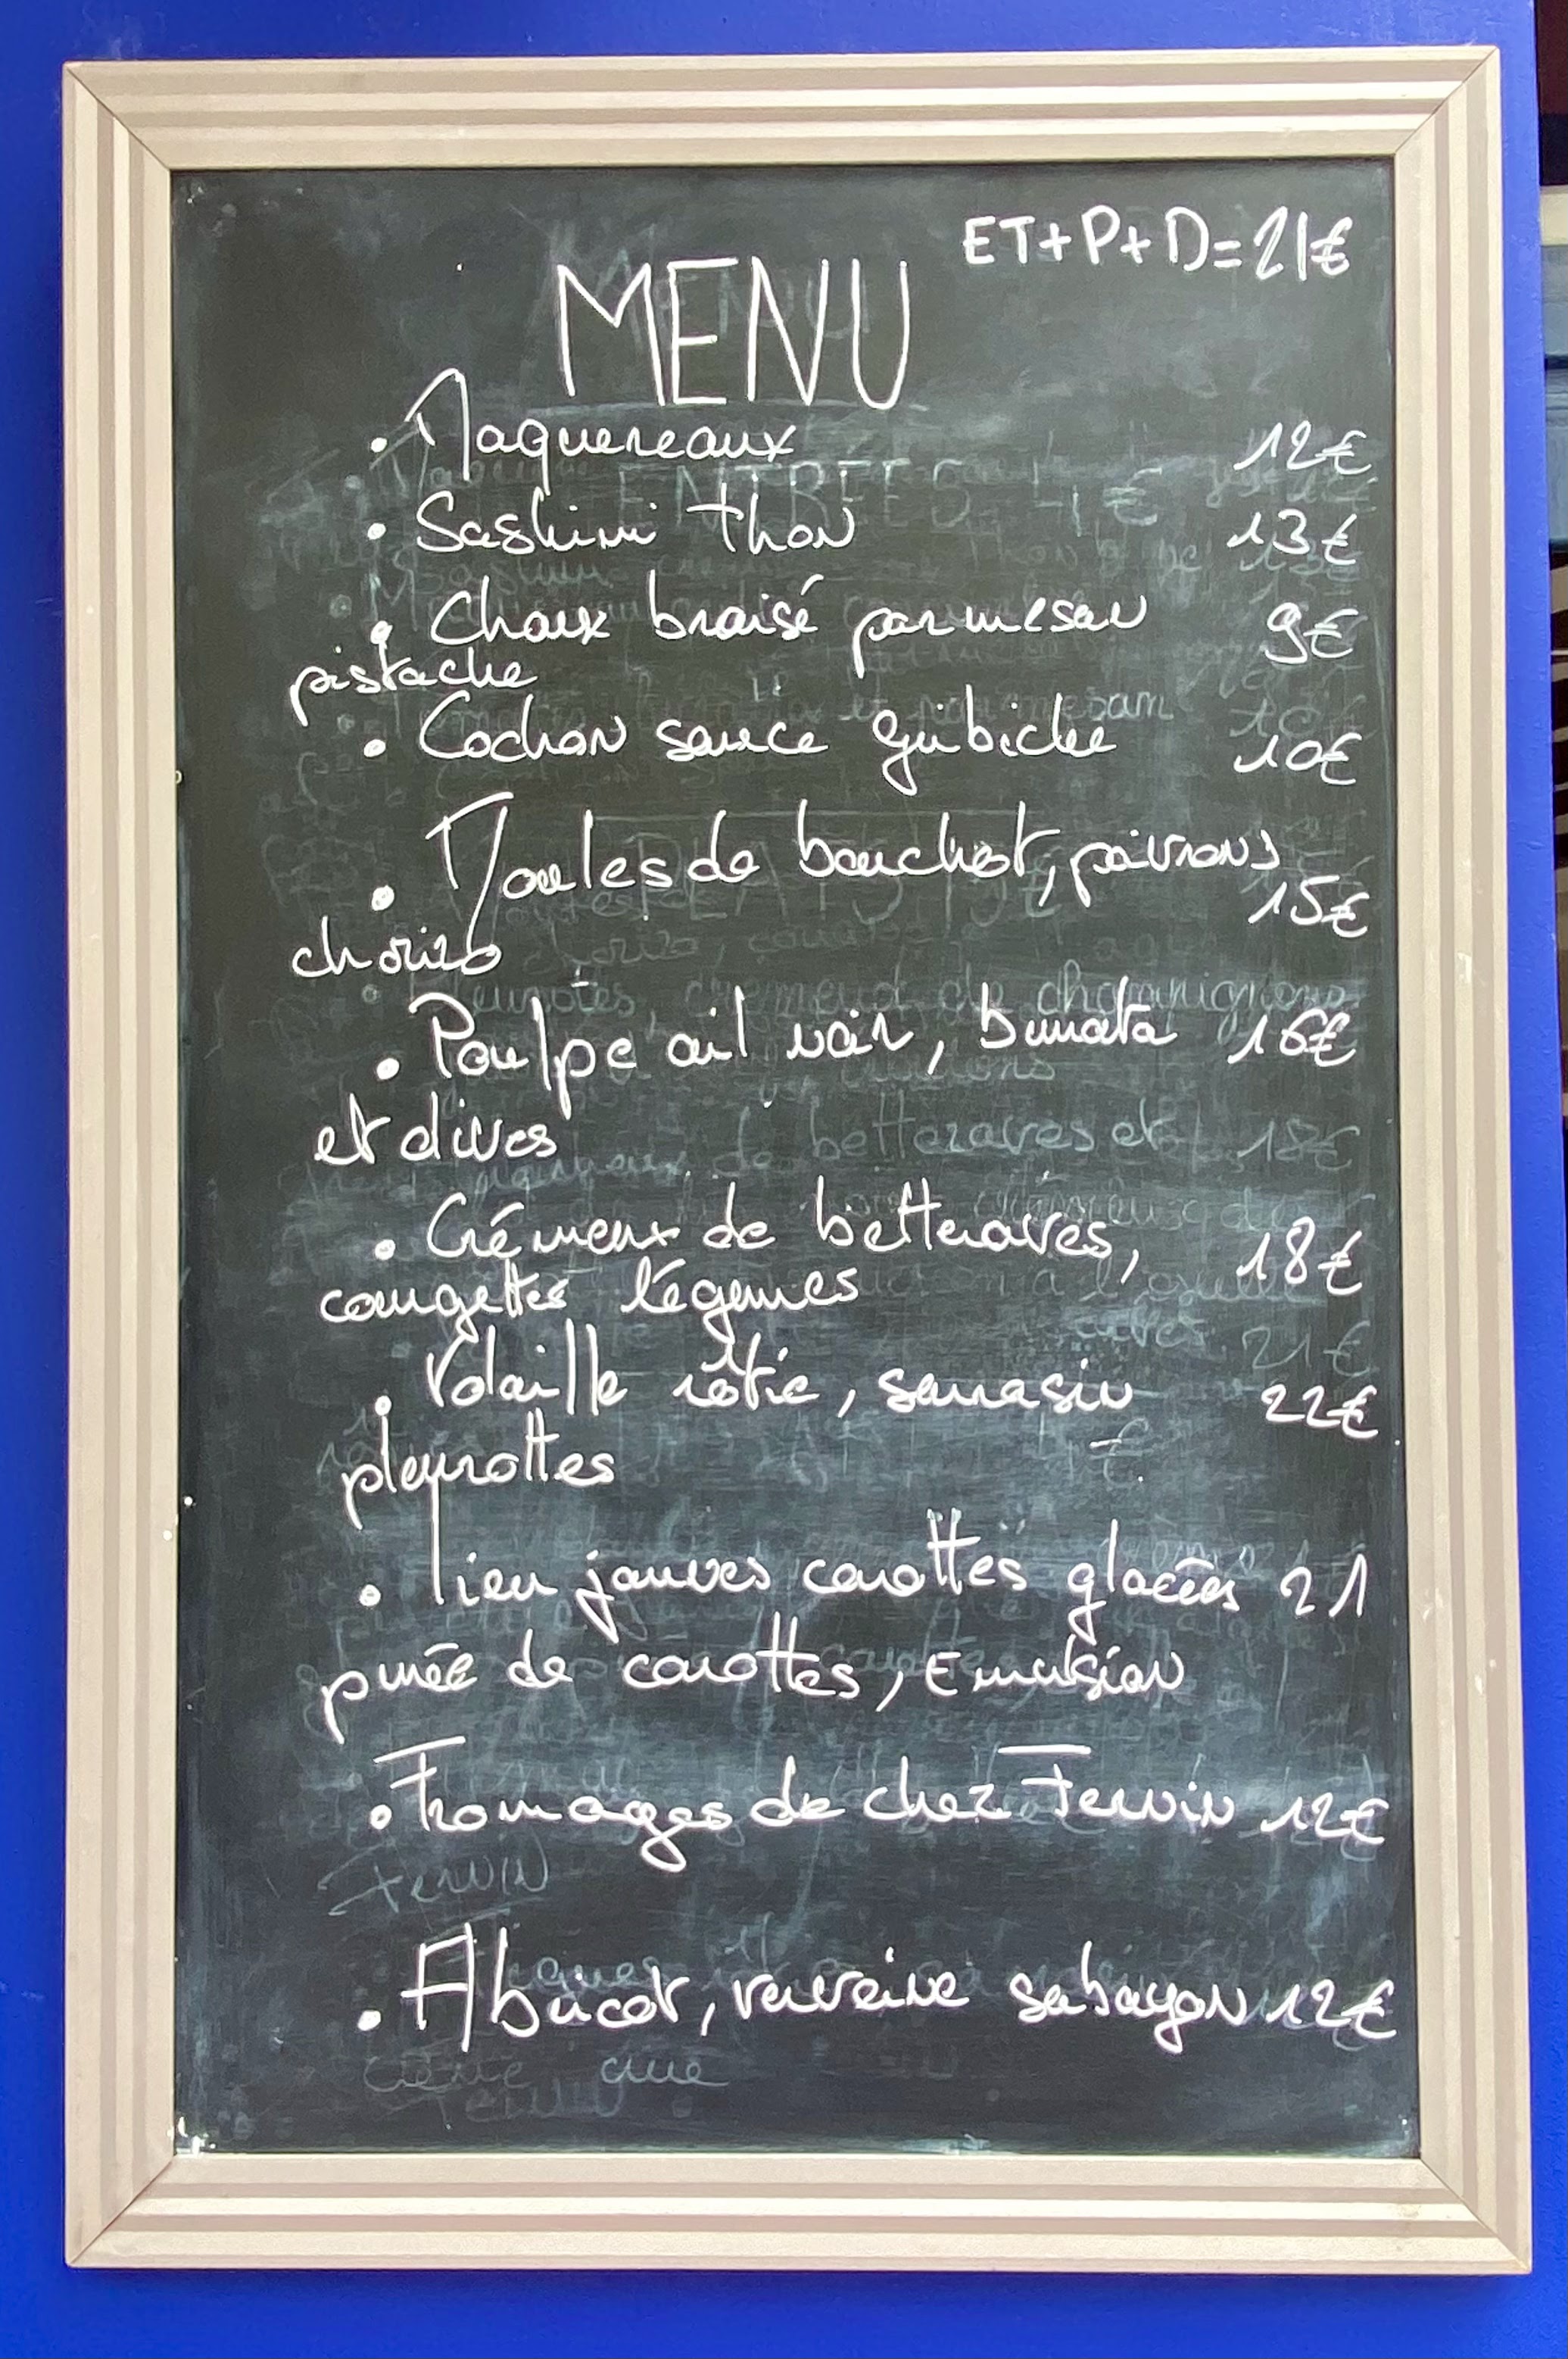 ET+P+D=21€
MENU
• Maquereaux 12€
• Sashimi thon 13€
• Choux braisé parmesan 9€
pistache
• Cochon sauce gribiche 10€
• Moules de bouchot, poivrons
15€
chorizo
• Poulpe ail noir, burrata 16€
et olives
• Crémeux de betteraves, 18€
courgettes légumes
• Volaille rôtie, sarrasin 22€
pleurottes
• Lieu jaunes carottes glacées 21
purée de carottes, Emulsion
• Fromages de chez 12€
• Abricot, verveine sabayon 12€